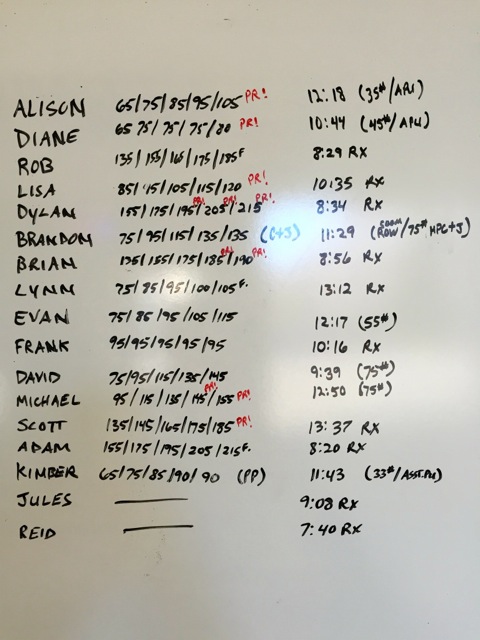 ALISON 65/75/85/95/105 PR! 12:18 (35#/APU)
DIANE 65 75/75/75/80 PR! 10:44 (45#/APU)
ROB 135/155/165/175/185F 8:29 RX
LISA 85/95/105/115/120 PR! 10:35 RX
DYLAN 155/175/195/205/215 PR! PR! PR! 8:34 RX
BRANDON 75/95/115/135/135 (C+J) 11:29 (500M ROW/75# HPC+J)
BRIAN 135/155/175/185/190 PR! PR! 8:56 RX
LYNN 75/85/95/100/105F. 13:12 RX
EVAN 75/85/95/105/115 12:17 (55#)
FRANK 95/95/95/95/95 10:16 RX
DAVID 75/95/115/135/145 9:39 (75#)
MICHAEL 95/115/135/145/155 PR! PR! 12:50 (75#)
SCOTT 135/145/165/175/185 PR! 13:37 RX
ADAM 155/175/195/205/215F. 8:20 RX
KIMBER 65/75/85/90/90 (PP) 11:43 (33#/ASST.PU)
JULES 9:08 RX
REID 7:40 RX